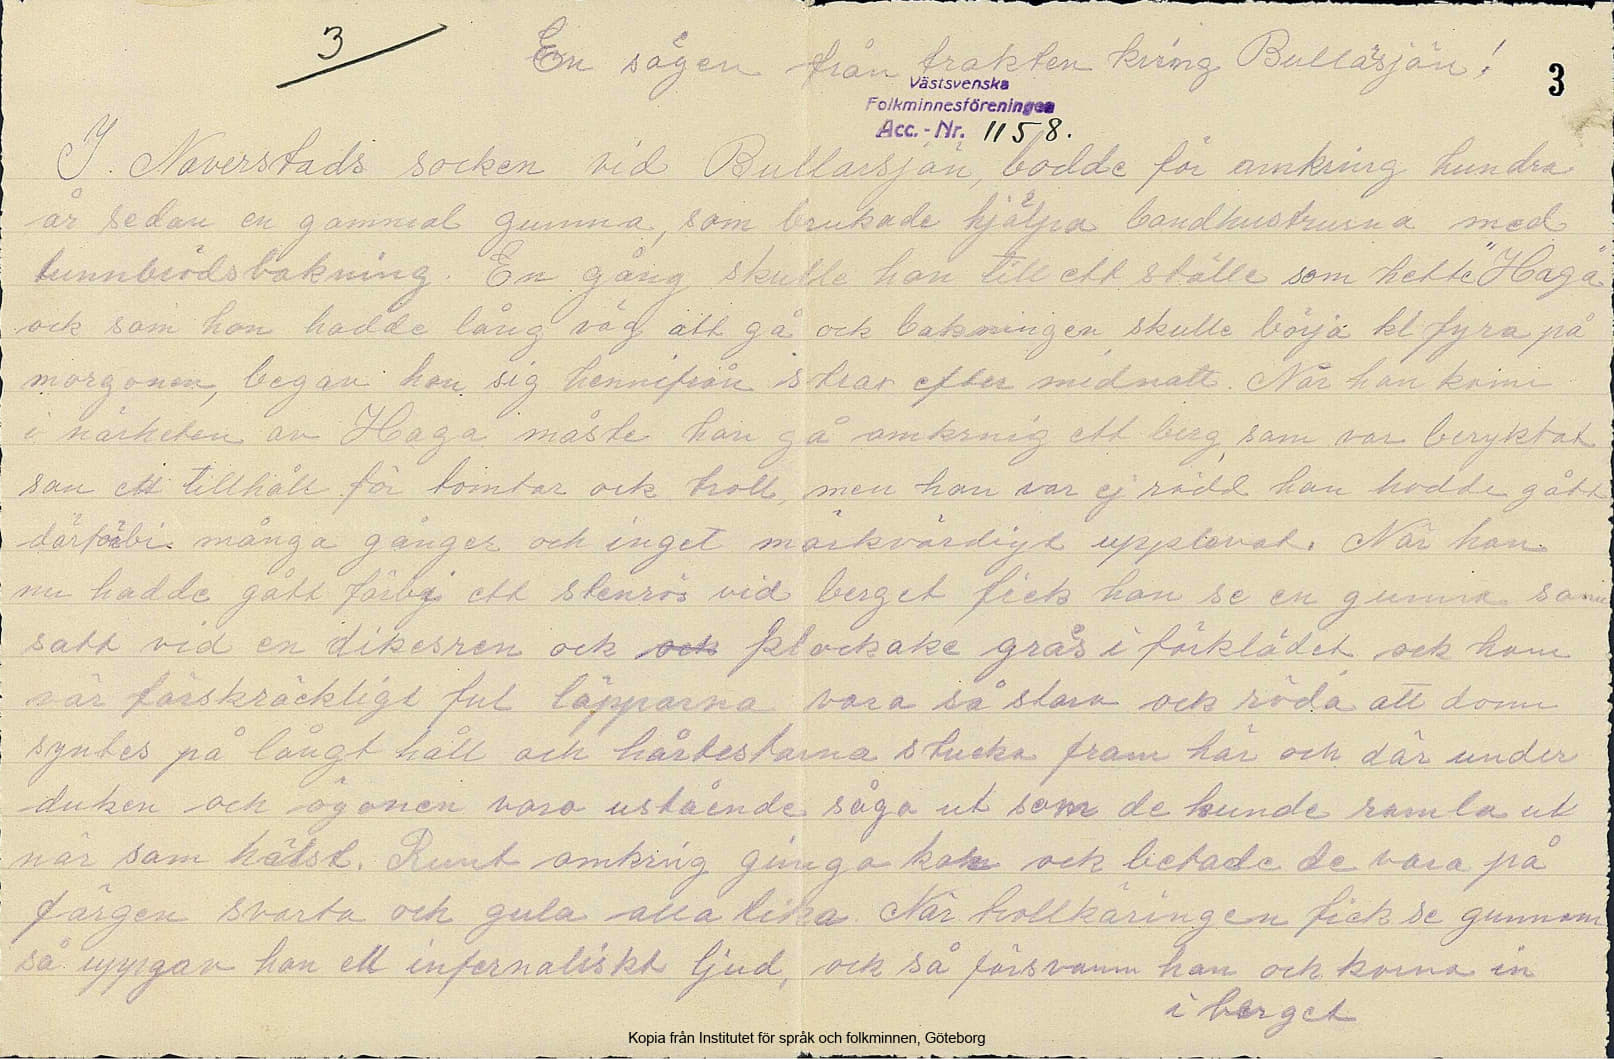 3
En sägen från trakten kring Bullarsjön!
3
Västsvenska
Folkminnesföreningen
Acc.-Nr. 1158.
I. Naverstads socken vid Bullarsjön, bodde för omkring hundra
år sedan en gammal gumma, som brukade hjälpa bondhustrurna med
tunnbrödsbakning. En gång skulle hon till ett ställe som hette "Haga"
ock som hon hadde lång väg att gå ock bakningen skulle börja kl fyra på
morgonen, begav hon sig hemifrån strax efter midnatt. När hon kom
i närheten av Haga måste hon gå omkring ett berg, som var beryktat
som ett tillhåll för tomtar ock troll, men hon var ej rädd hon hadde gått
därförbi många gånger och inget märkvärdigt upplevat. När hon
nu hadde gått förbi ett stenrös vid berget fick hon se en gumma som
satt vid en dikesren ock ock plockake gräs i förklädet ock hon
var förskräckligt ful läpparna vara så stora ock röda att dom
syntes på långt håll och hårtestarna stucko fram här och där under
duken och ögonen voro utstående såga ut som de kunde ramla ut
när som hälst. Runt omkring ginga kor ock betade de vara på
färgen svarta och gula alla lika. När trollkäringen fick se gumman
så uppgav hon ett infernaliskt ljud, ock så försvann hon och korna in
i berget
Kopia från Institutet för språk och folkminnen, Göteborg